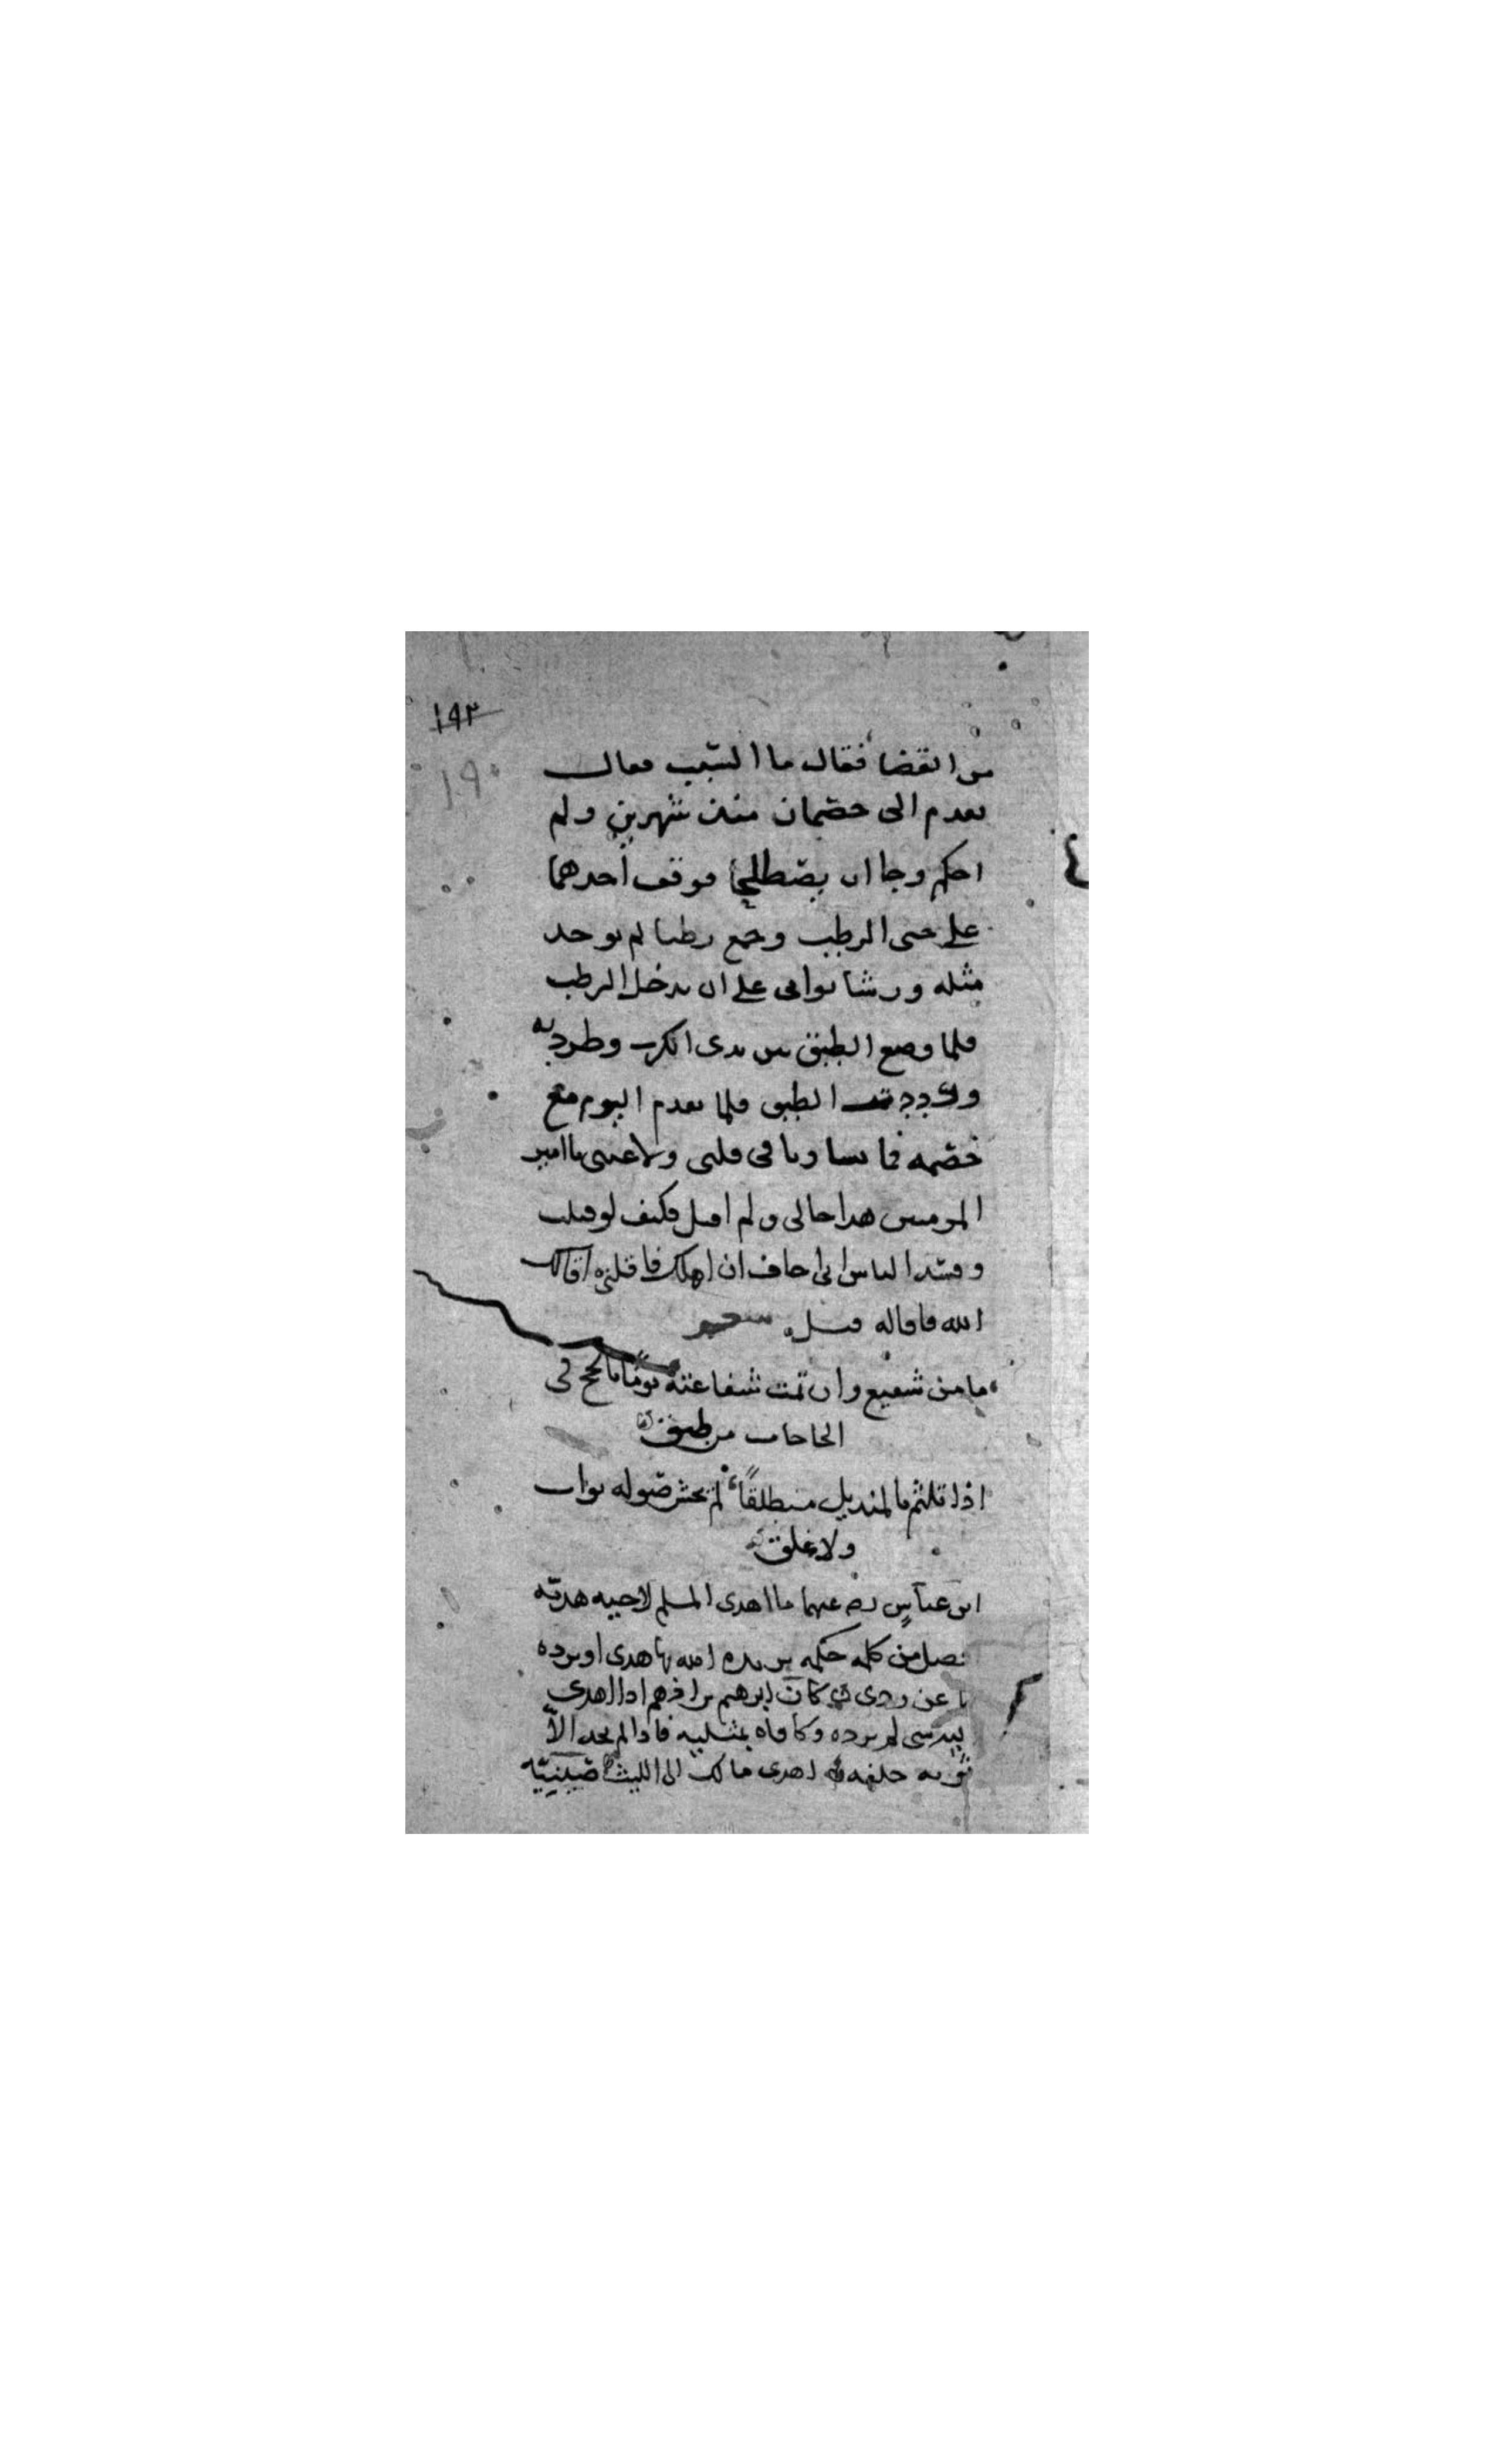 ١٩٣
١٩٠
من القضا فقال ما السبب فقال
تقدم الى خصمان منذ شهرين ولم
احكم رجا ان يصطلحا فوقف احدهما
على حبي الرطب وجمع رطبا لم يوجد
مثله ورشا بوابي على ان يدخل الرطب
فلما وضع الطبق بين يدي انكرت وطردته
ورددت الطبق فلما تقدم اليوم مع
خصمه فما تساويا في قلبي ولا عيني يا امير
المومنين هذا حالي ولم اقبل فكيف لو قبلت
وفسد الناس اني اخاف ان اهلك فاقلني اقالك
الله فاقاله قيل
ما من شفيع وان تمت شفاعته يوما بانجح في
الحاجات من طبق
اذا تلثم بالمنديل منطلقا لم يخش صولة بواب
ولا غلق
ابن عباس رضي عنهما ما اهدى المسلم لاخيه هدية
افضل من كلمة حكمة يزيده الله بها هدى او يرده
بها عن ردى كان ابرهيم بن ادهم اذا اهدى
اليه شي لم يرده وكافاه بمثليه فاذا لم يجد الا
ثوبه خلعه اهدى مالك الى الليث صينية